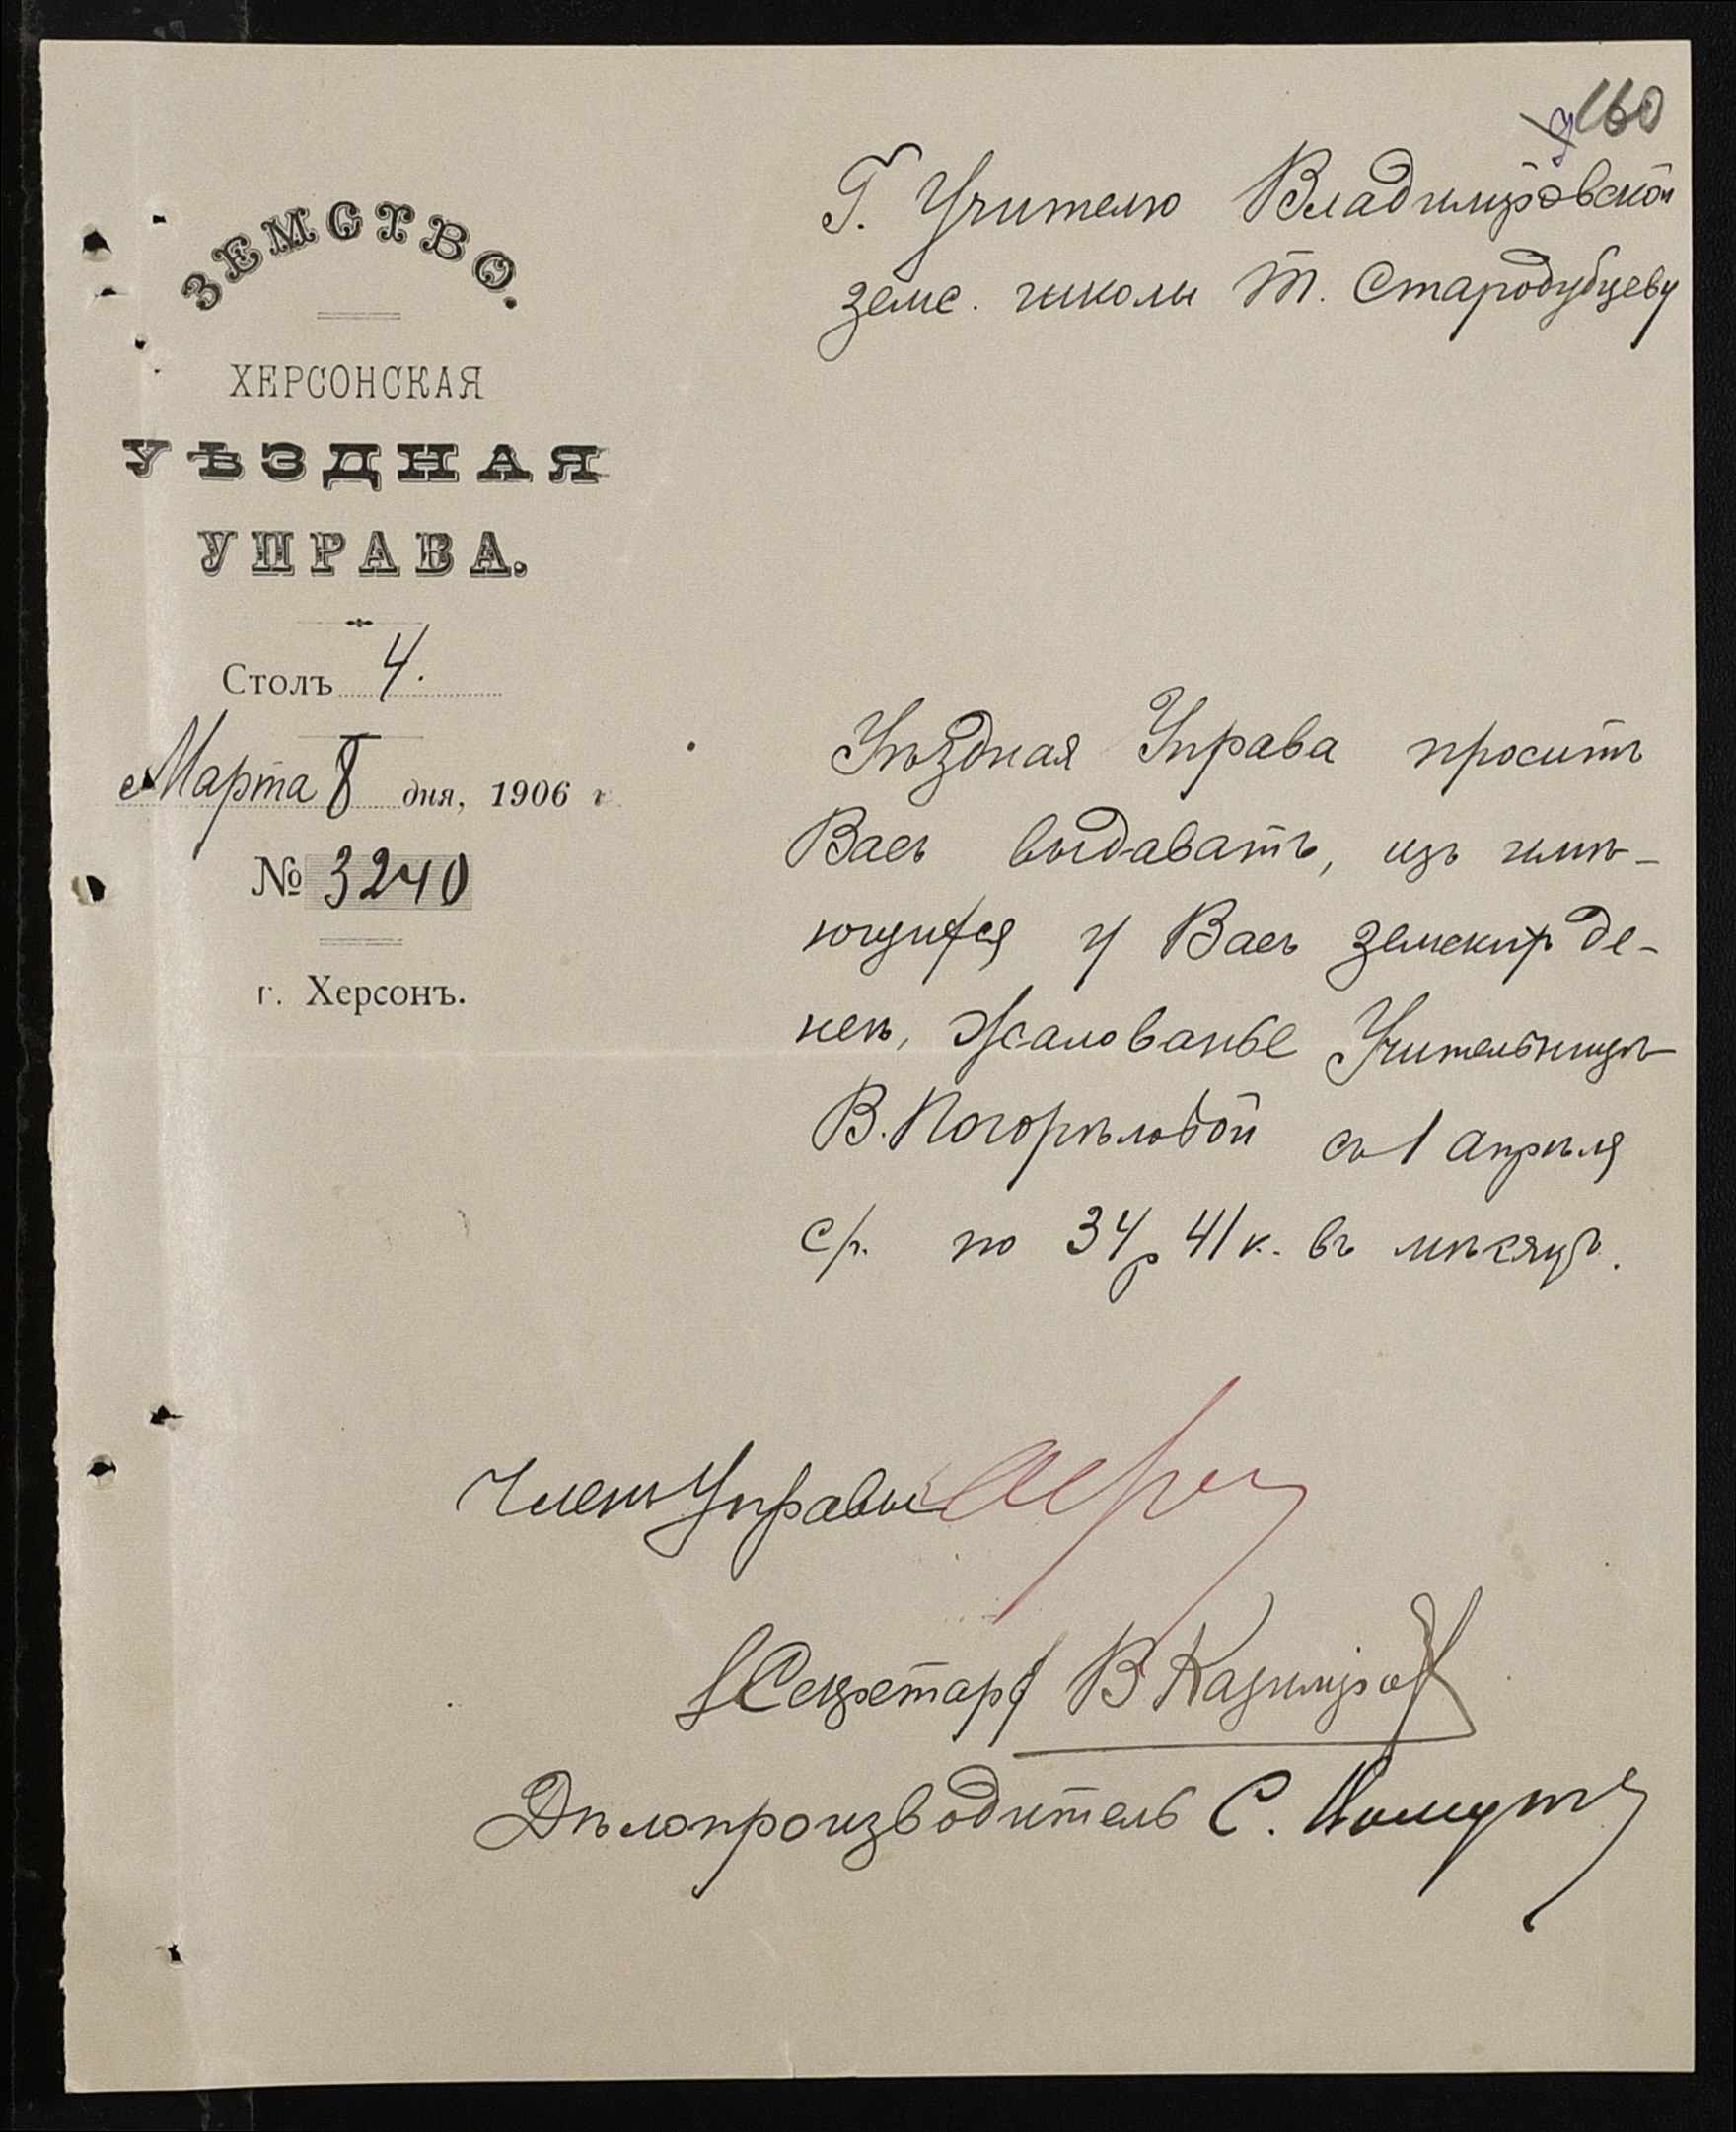 160
Г. Учителю Владимровской
земс. школы Т. Стародубцеву
ЗЕМСТВО.
ХЕРСОНСКАЯ
УѢЗДНАЯ
УПРАВА.
Столъ 4.
Марта 8 дня, 1906 г
№ 3240
г. Херсонъ.
Уѣздная Управа проситъ
Васъ выдавать, изъ имѣ-
ющихся у Васъ земскихъ де-
негъ, жалованье Учительницѣ
В. Погорѣловой съ 1 апрѣля
с/г. по 34 р 41 к. въ мѣсяцъ.
Членъ Управы
Секретарь В Казиміров
Дѣлопроизводитель С.